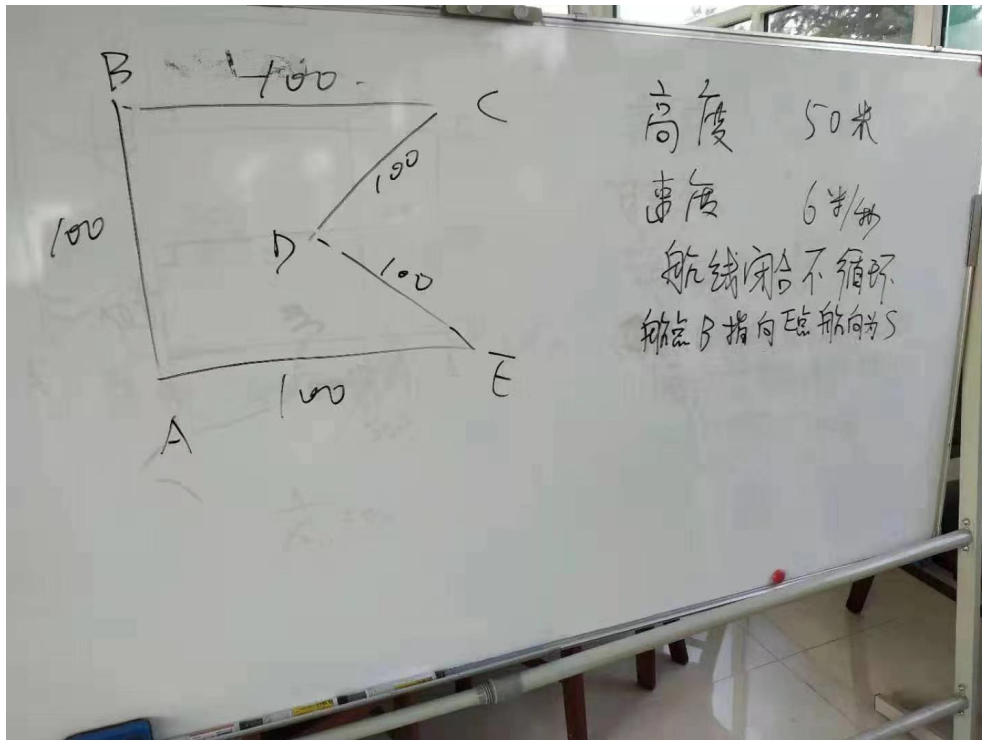 B
100
C
100
100
D
100
E
100
A
高度 50米
速度 6米/秒
航线闭合不循环
航点B指向E点航向为S